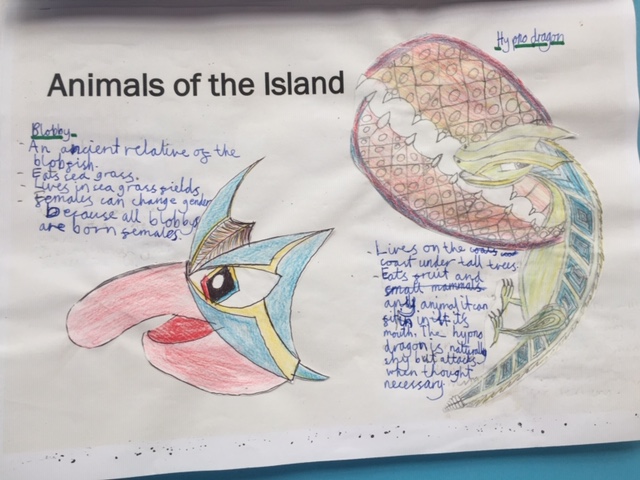 Animals of the Island
Blobby
- An ancient relative of the
blobfish.
- Eats sea grass.
- Lives in sea grass fields.
- Females can change gender
because all blobbys
are born females.
Hypno dragon
- Lives on the
coast under tall trees.
- Eats fruit and
small mammals
any animal it can
in it its
mouth. The hypno
dragon is naturally
shy but attacks
when thought
necessary